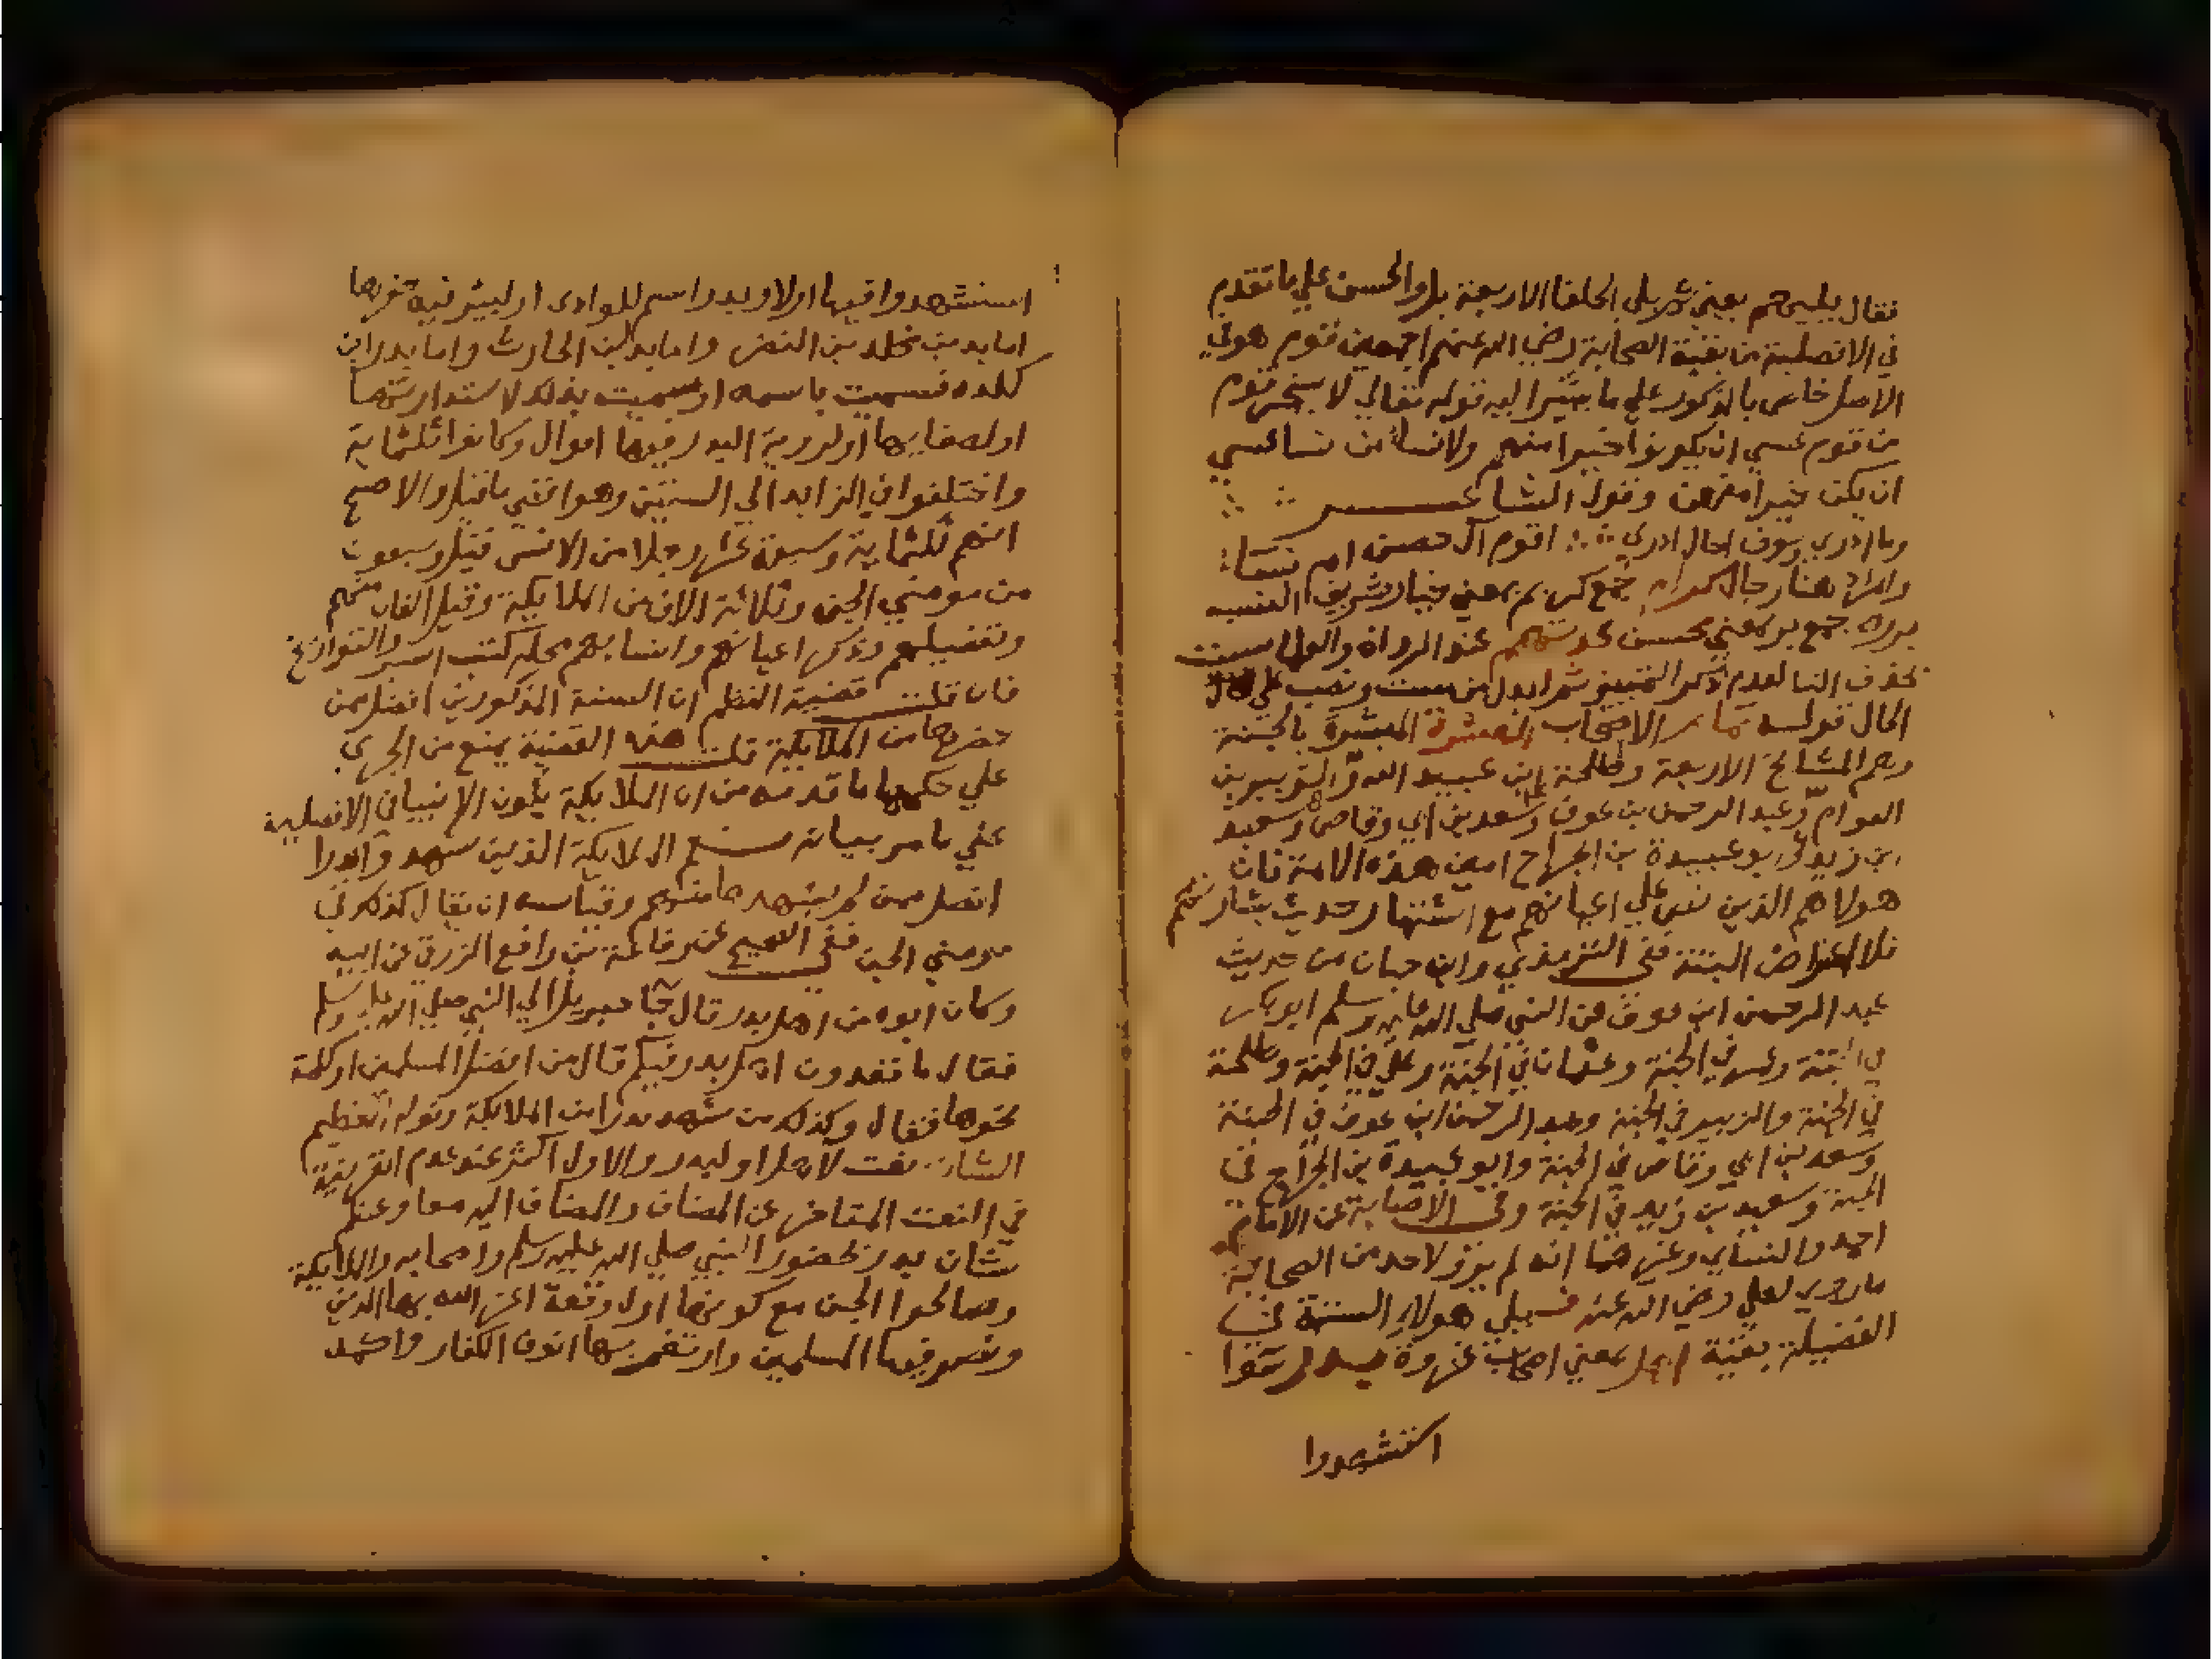 فقال يليهم يعني ثم يلي الخلفا الاربعة بل والحسن علي ما تقدم
في الافضلية من بقية الصحابة رضي الله عنهم اجمعين قوم هو في
الاصل خاص بالذكور علي ما يشير اليه قوله تعالي لا يسخر قوم
من قوم عسي ان يكونوا خيرا منهم ولا نسا من نسا عسي
ان يكن خيرا منهن وقول الشاعر
وما ادري وسوف اخال ادري اقوم ال حصن ام نساء
والمراد هنا رجال كرام جمع كريم بمعني خيار شريف النفس
برره جمع بر بمعني محسن عدتهم عند الرواة والعلما ست
بحذف التا لعدم ذكر التمييز ثم ابدل من ست ونصب علي
الحال قوله تمام الاصحاب العشرة المبشرة بالجنة
وهم المشايخ الاربعة وطلحة ابن عبيد الله والزبير بن
العوام وعبد الرحمن بن عوف وسعد بن ابي وقاص وسعيد
ابن زيد وابو عبيدة بن الجراح امين هذه الامة فان
هولا هم الذين نص علي اعيانهم مع اشتهار حديث بشارتهم
فلا اعتراض البتة ففي الترمذي وابن حبان من حديث
عبد الرحمن ابن عوف عن النبي صلي الله عليه وسلم ابو بكر
في الجنة وعمر في الجنة وعثمان في الجنة وعلي في الجنة وطلحة
في الجنة والزبير في الجنة وعبد الرحمن ابن عوف في الجنة
وسعد بن ابي وقاص في الجنة وابو عبيدة بن الجراح في
الجنة وسعيد بن زيد في الجنة وفي الاصابة عن الامام
احمد والنساي وغيرهما انه لم يرو لاحد من الصحابة
ما روي لعلي رضي الله عنه فيلي هولاء الستة في
الفضيلة بقية اهل بمعني اصحاب غزوة بدر سوا
استشهدوا
استشهدوا فيها اولا وبدر اسم للوادي او لبير فيه حفرها
اما بدر بن مخلد بن النضر واما بدر بن الحارث واما بدر ابن
كلده فسميت باسمه او سميت بذلك لاستدارتها
او لصفايها او لروية البدر فيها اقوال وكانوا ثلثماية
واختلفوا في الزايد الي الستين وهو اقصي ما قيل والاصح
انهم ثلثماية وسبعة عشر رجلا من الانس قيل وسبعون
من مومني الجن وثلاثة الاف من الملايكة وقيل الفان منهم
وتفصيلهم وذكر اعيانهم وانسابهم محله كتب السير والتواريخ
فان قلت قضية النظم ان الستة المذكورين افضل ممن
حضرها من الملايكة قلت هذه القضية يمنع من الجري
علي حكمها ما قدمه من ان الملايكة يلون الانبيا في الافضلية
علي ما مر بيانه نعم الملايكة الذين شهدوا بدرا
افضل ممن لم يشهدها منهم وقياسه ان يقال كذلك في
مومني الجن ففي الصحيح عن رفاعة بن رافع الزرقي عن ابيه
وكان ابوه من اهل بدر قال جا جبريل الي النبي صلي الله عليه وسلم
فقال ما تعدون اهل بدر فيكم قال من افضل المسلمين او كلمة
نحوها فقال وكذلك من شهد بدرا من الملايكة وقوله العظيم
الشان نعت لاهل او لبدر والاول اكثر عند عدم القرينة
في النعت المتاخر عن المضاف والمضاف اليه معا وعظم
شان بدر بحضور النبي صلي الله عليه وسلم واصحابه والملايكة
وصالحوا الجن مع كونها اول وقعة اعز الله بها الدين
ونصر فيها المسلمين وارتغم بها انوف الكفار واكمد